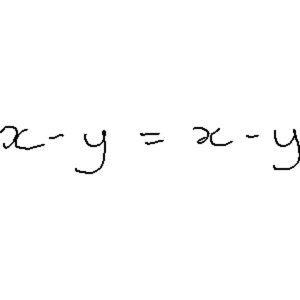 x - y = x - y